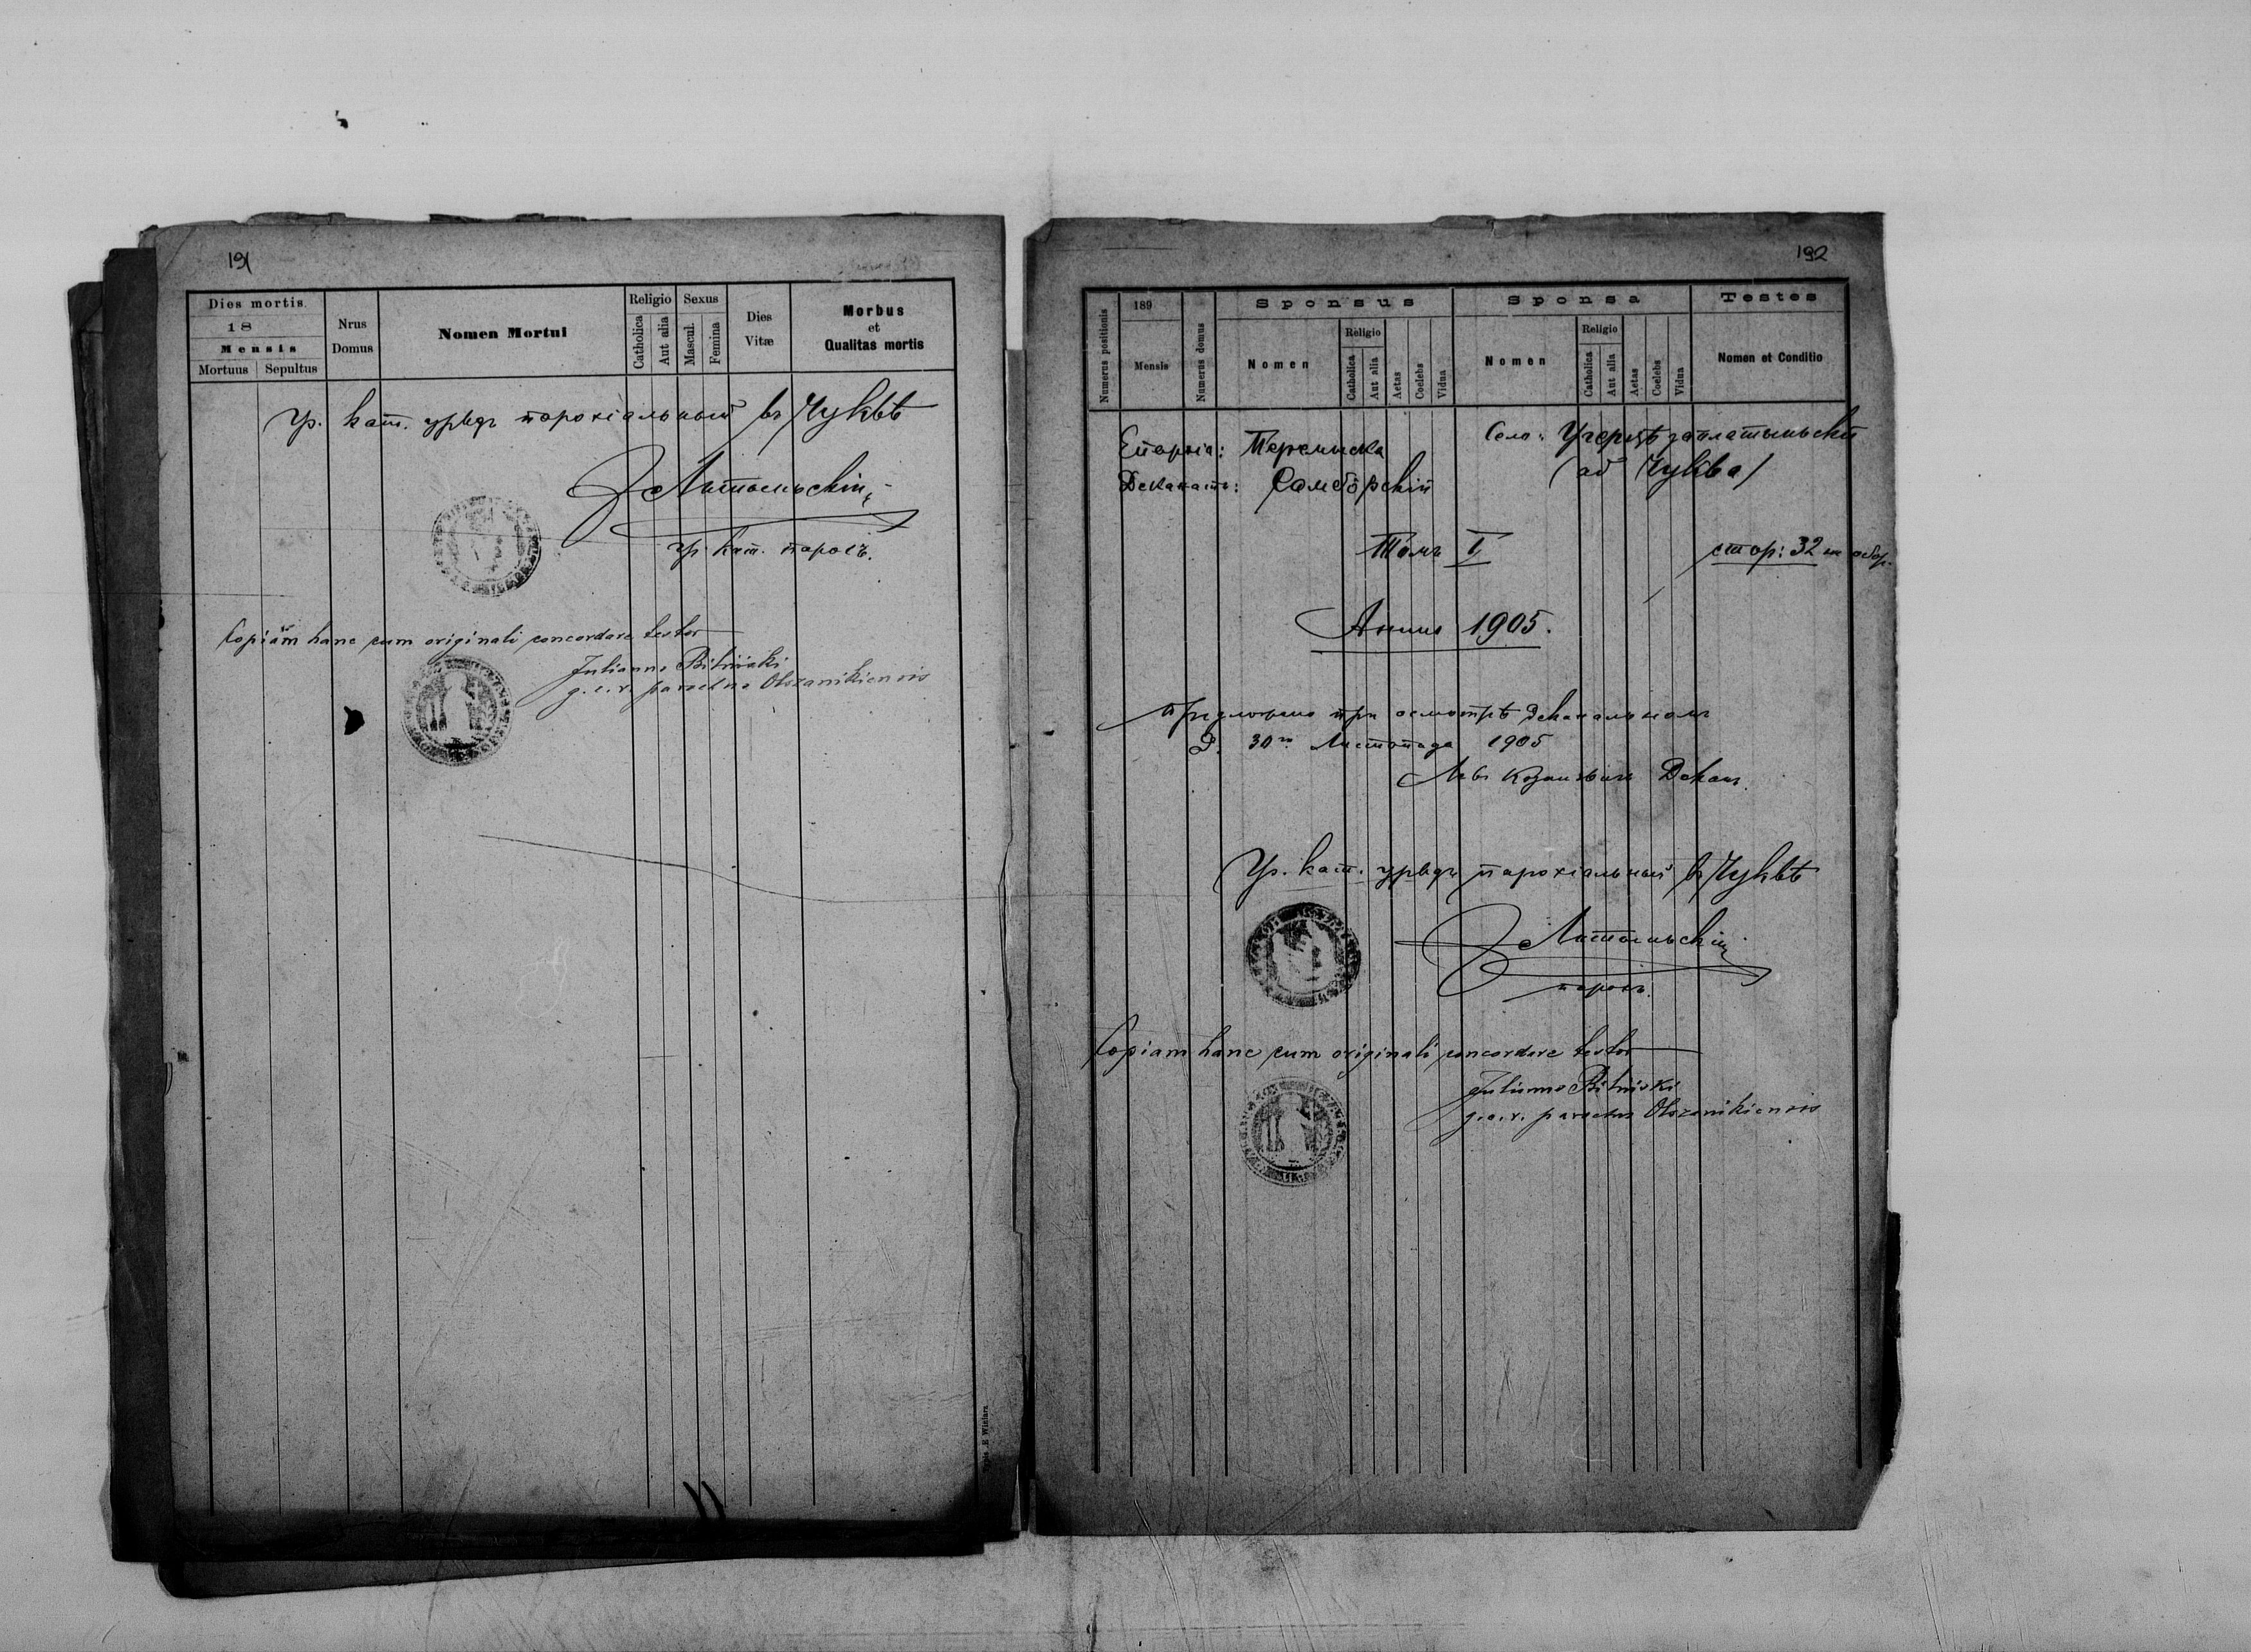 191
Dies mortis
18
Mensis
Mortuus Sepultus
Nrus Domus
Nomen Mortui
Religio
Catholica
Aut alia
Sexus
Mascul.
Femina
Dies Vitæ
Morbus et Qualitas mortis
Гр. кат. урядъ парохіальный въ Чуквѣ
гр. кат. парохъ.
Copiam hanc cum originali concordare testor
Julianus
g. c. r. parochus Olszanikiensis
192
Numerus positionis
189
Mensis
Numerus domus
Sponsus
Nomen
Religio
Catholica
Aut alia
Aetas
Coelebs
Vidua
Sponsa
Nomen
Religio
Catholica
Aut alia
Aetas
Coelebs
Vidua
Testes
Nomen et Conditio
Епархіа: Перемиска Село:
Деканатъ: Самбôрскій (ad Чуква)
Томъ I стор: 32
Анно 1905.
Предложено при осмотрѣ деканальномъ
Д. 30 Листопада 1905
Левъ Деканъ.
Гр. кат. урядъ парохіальный въ Чуквѣ
парохъ.
Copiam hanc cum originali concordare testor
Julianus
g. c. r. parochus Olszanikiensis